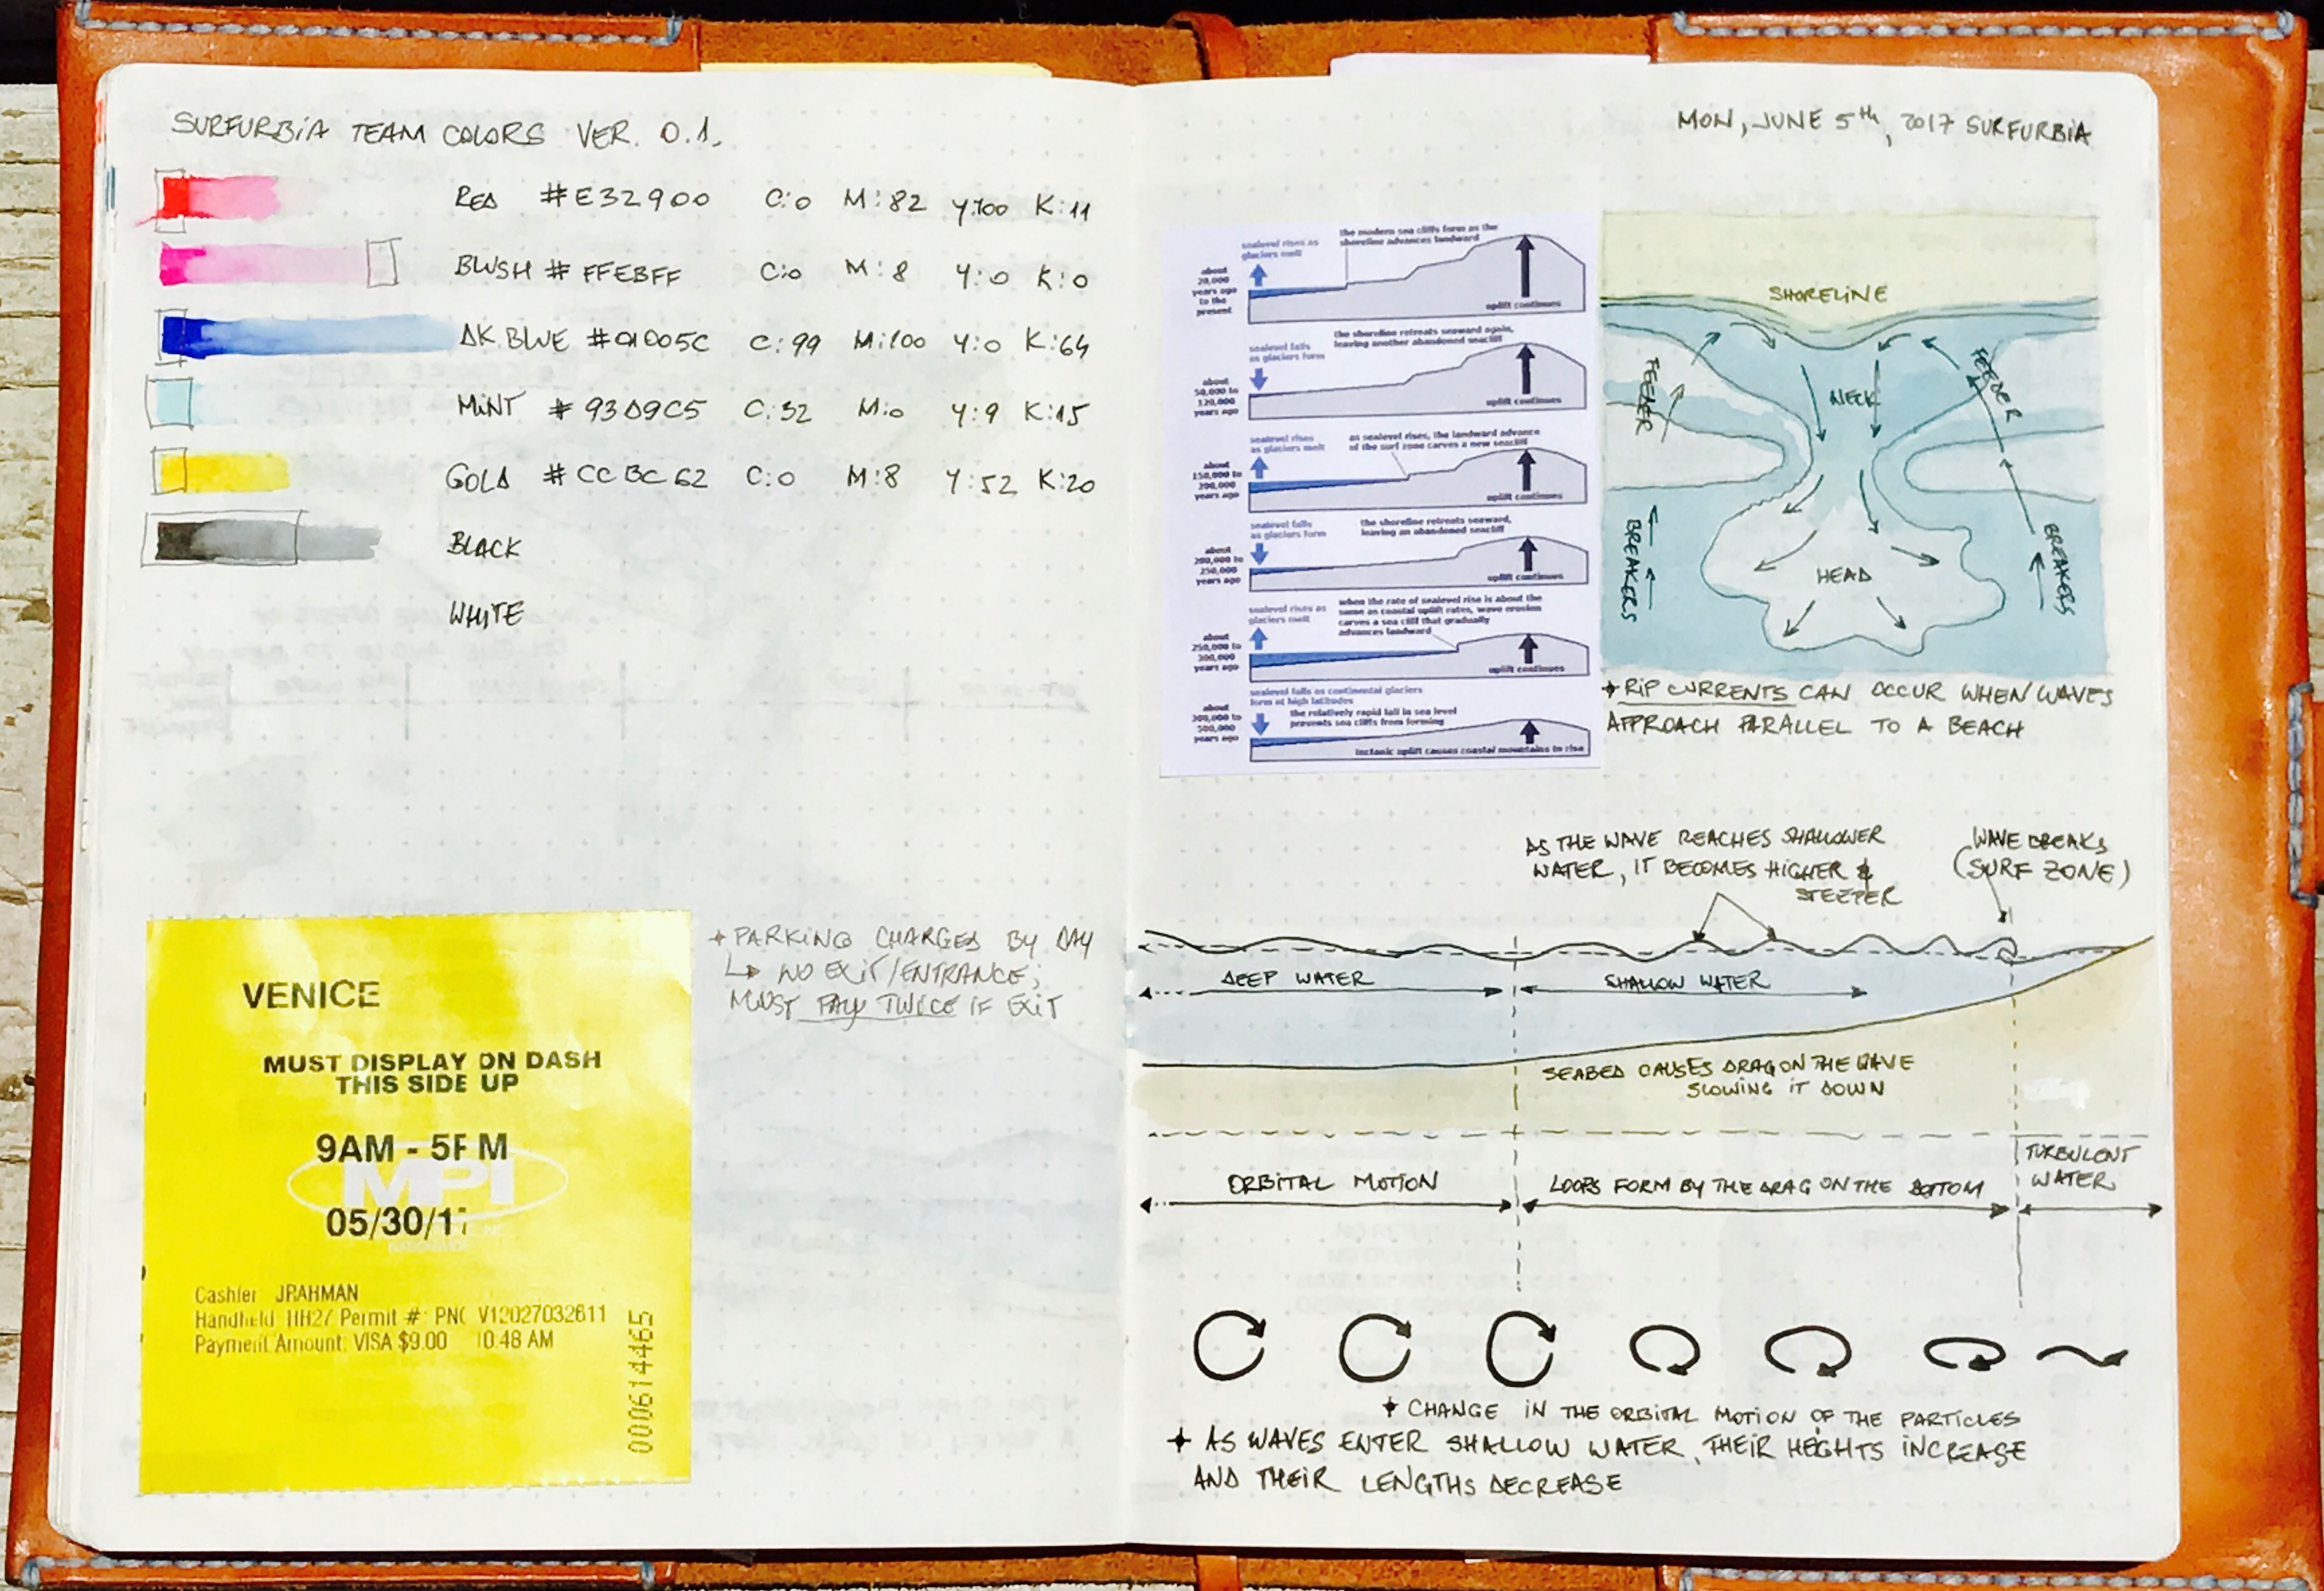 SURFURBIA TEAM COLORS VER. 0.1.
RED #E32900 C:0 M:82 Y:100 K:11
BLUSH # FFEBFF C:0 M:8 Y:0 K:0
DK.BLUE #01005C C:99 M:100 Y:0 K:64
MINT # 93D9C5 C:32 M:0 Y:9 K:15
GOLD # CCBC62 C:0 M:8 Y:52 K:20
BLACK
WHITE
VENICE
MUST DISPLAY ON DASH
THIS SIDE UP
9AM - 5PM
MPI
05/30/17
Cashier JRAHMAN
Handheld HH27 Permit #: PNC V12027032611
Payment Amount: VISA $9.00 10:48 AM
000614465
PARKING CHARGES BY DAY
NO EXIT/ENTRANCE;
MUST PAY TWICE IF EXIT
MON, JUNE 5TH, 2017 SURFURBIA
sealevel rises as
glaciers melt
the modern sea cliffs form as the
shoreline advances landward
about
20,000
years ago
to the
present
uplift continues
sealevel falls
as glaciers form
the shoreline retreats seaward again,
leaving another abandoned seacliff
about
50,000 to
120,000
years ago
uplift continues
sealevel rises
as glaciers melt
as sealevel rises, the landward advance
of the surf zone carves a new seacliff
about
150,000 to
200,000
years ago
uplift continues
sealevel falls
as glaciers form
the shoreline retreats seaward,
leaving an abandoned seacliff
about
200,000 to
250,000
years ago
uplift continues
sealevel rises as
glaciers melt
when the rate of sealevel rise is about the
same as coastal uplift rates, wave erosion
carves a sea cliff that gradually
advances landward
about
250,000 to
300,000
years ago
uplift continues
sealevel falls as continental glaciers
form at high latitudes
the relatively rapid fall in sea level
prevents sea cliffs from forming
about
300,000 to
500,000
years ago
tectonic uplift causes coastal mountains to rise
SHORELINE
FEEDER
NECK
FEEDER
BREAKERS
HEAD
BREAKERS
RIP CURRENTS CAN OCCUR WHEN WAVES
APPROACH PARALLEL TO A BEACH
AS THE WAVE REACHES SHALLOWER
WATER, IT BECOMES HIGHER &
STEEPER
WAVE BREAKS
(SURF ZONE)
DEEP WATER
SHALLOW WATER
SEABED CAUSES DRAG ON THE WAVE
SLOWING IT DOWN
ORBITAL MOTION
LOOPS FORM BY THE DRAG ON THE BOTTOM
TURBULENT
WATER
CHANGE IN THE ORBITAL MOTION OF THE PARTICLES
AS WAVES ENTER SHALLOW WATER, THEIR HEIGHTS INCREASE
AND THEIR LENGTHS DECREASE